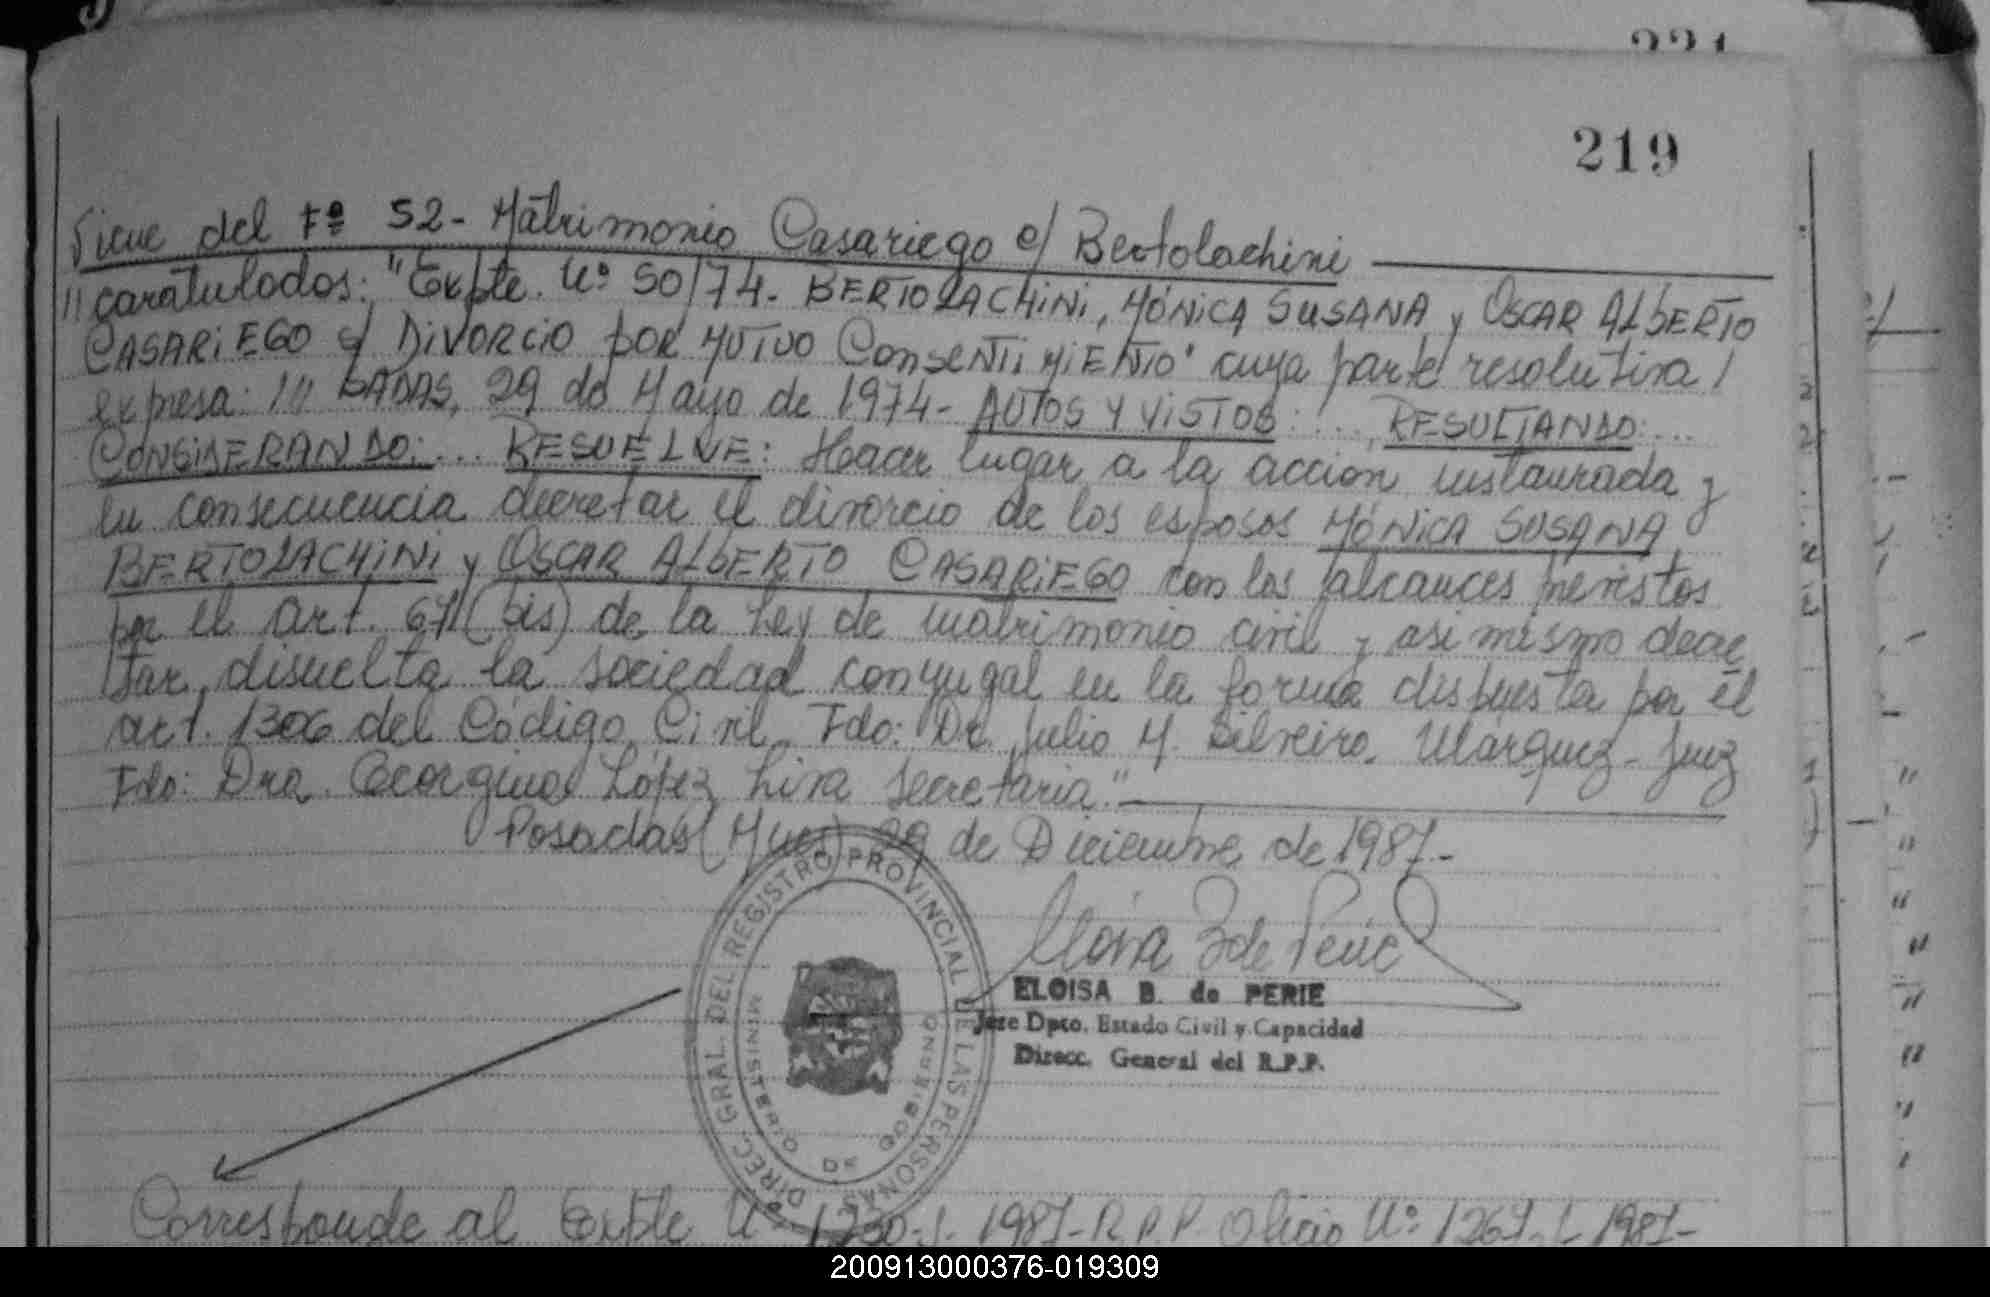 219
Viene del Fº 52- Matrimonio Casariego c/ Bertolachini
// caratulados: "Expte. Nº 50/74- BERTOLACHINI, MÓNICA SUSANA y OSCAR ALBERTO
CASARIEGO s/ DIVORCIO POR MUTUO CONSENTIMIENTO" cuya parte resolutiva /
expresa: /// SADAS, 29 de Mayo de 1974- AUTOS Y VISTOS: ... RESULTANDO: ...
CONSIDERANDO: ... RESUELVE: Hacer lugar a la acción instaurada y
en consecuencia decretar el divorcio de los esposos MÓNICA SUSANA
BERTOLACHINI y OSCAR ALBERTO CASARIEGO con los alcances previstos
por el art. 67 (bis) de la Ley de matrimonio civil y asi mismo decre
tar disuelta la sociedad conyugal en la forma dispuesta por el
art. 1306 del Código Civil. Fdo: Dr. Julio M. Silveira. Márquez- Juez
Fdo: Dra. Georgina López Lira Secretaria."
Posadas (Mnes) 29 de Diciembre de 1987-
DIREC. GRAL. DEL REGISTRO PROVINCIAL DE LAS PERSONAS
MINISTERIO DE GOBIERNO
ELOISA B. de PERIE
Jefe Dpto. Estado Civil y Capacidad
Direcc. General del R.P.P.
Corresponde al Expte Nº 1230-J- 1987-R.P.P. Oficio Nº 1267-J-1987-
200913000376-019309